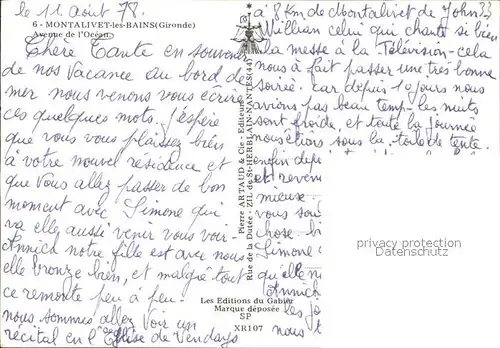 le 11 août 78.
6 - MONTALIVET-les-BAINS (Gironde)
Avenue de l'Océan
Chère Tante en souvenir
de nos Vacance au bord de
mer nous venons vous écrire
ces quelques mots. j'éspère
que vous vous plaisez bien
à votre nouvel résidance et
que Vous allez passer de bon
moment avec Simone qui
va elle aussi venir vous voir-
Annick notre fille est avec nous
elle bronze bien, et malgré tout
ce remonte peu à peu.
nous sommes allez Voir un
récital en l'Eglise de Vendays
Pierre ARTAUD & Cie - Editeurs
Rue de la Dutée - ZIL de St-HERBLAIN-NANTES (44)
Les Editions du Gabier
Marque déposée
SP
XR107
à 8 Km de Montalivet de John
William celui qui chante si bien
la messe à la Télévision - cela
nous à fait passer une très bonne
soirée. car depuis 10 jours nous
avions pas beau temp - les nuits
sont froide, et toute la journée
nous étions sous la toile de tente.
enfin dep
et reven
mieuse
vous sou
chose b
Simone
qu'elle
Annick
les jo
nous t
privacy protection
Datenschutz